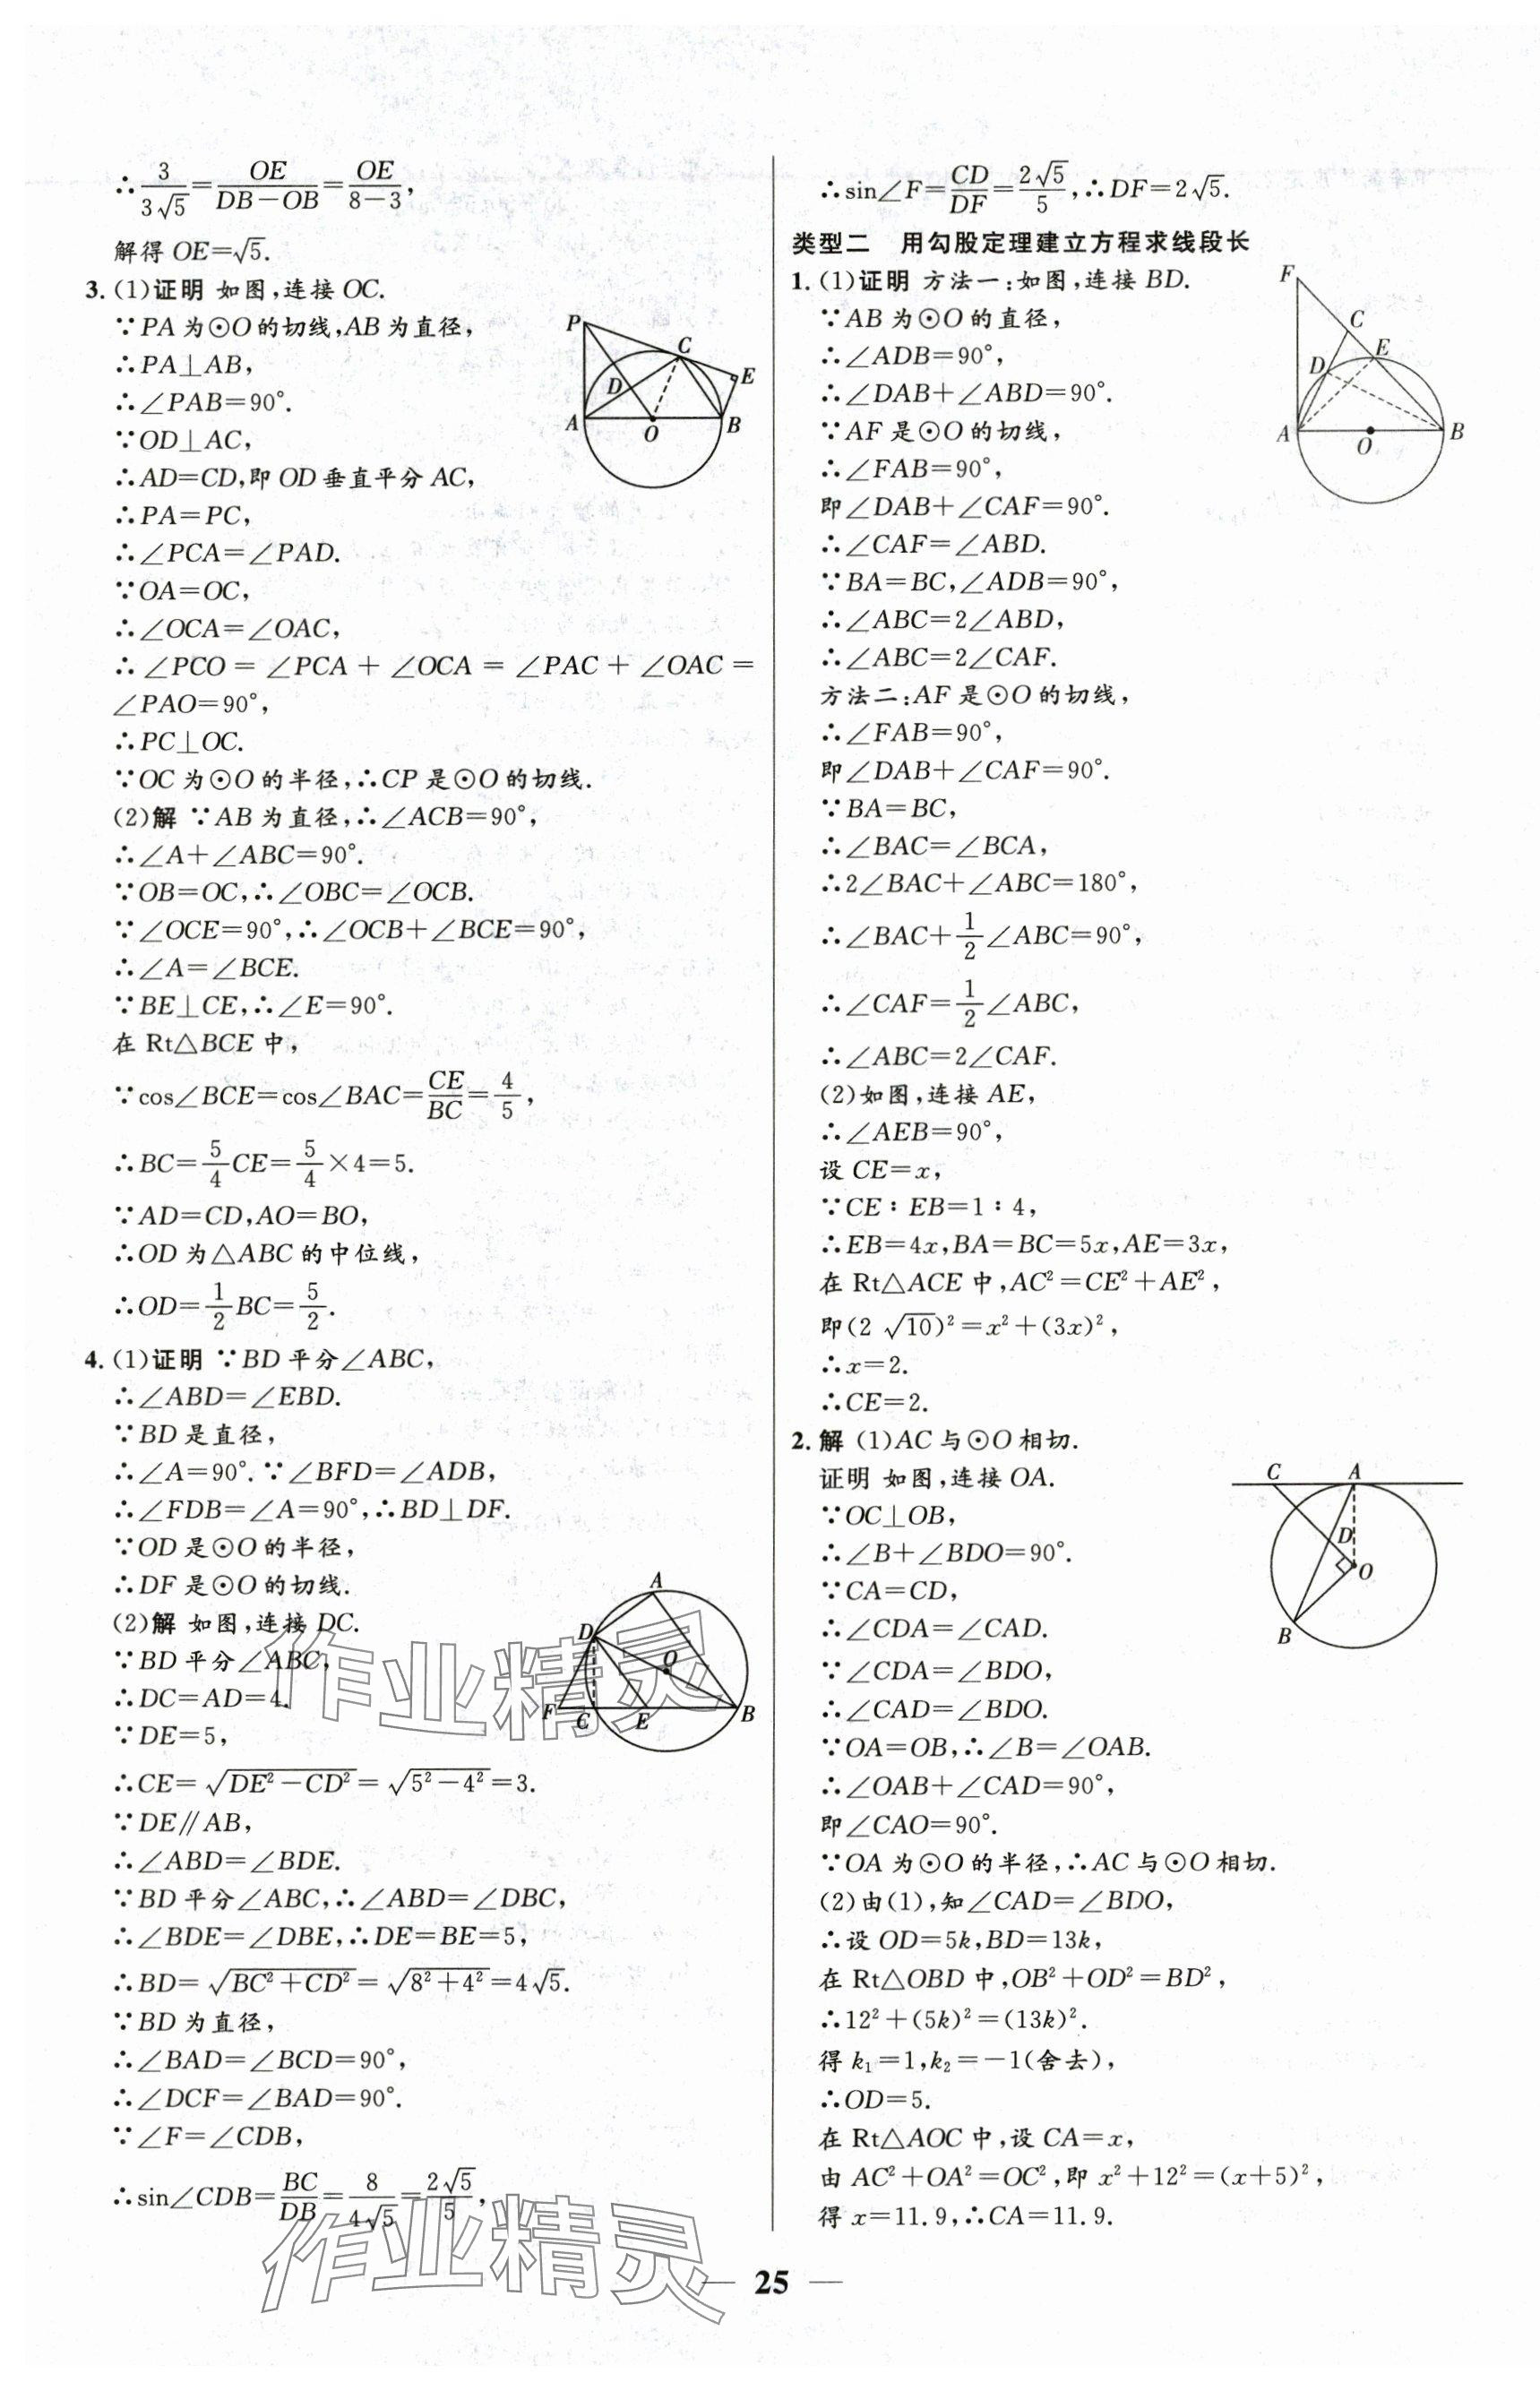 ∴3/(3√5)=OE/(DB−OB)=OE/(8−3),
解得 OE=√5.
3. (1)证明 如图,连接 OC.
∵PA 为⊙O 的切线,AB 为直径,
∴PA⊥AB,
∴∠PAB=90°.
∵OD⊥AC,
∴AD=CD,即 OD 垂直平分 AC,
∴PA=PC,
∴∠PCA=∠PAD.
∵OA=OC,
∴∠OCA=∠OAC,
∴∠PCO=∠PCA+∠OCA=∠PAC+∠OAC=
∠PAO=90°,
∴PC⊥OC.
∵OC 为⊙O 的半径,∴CP 是⊙O 的切线.
(2)解 ∵AB 为直径,∴∠ACB=90°,
∴∠A+∠ABC=90°.
∵OB=OC,∴∠OBC=∠OCB.
∵∠OCE=90°,∴∠OCB+∠BCE=90°,
∴∠A=∠BCE.
∵BE⊥CE,∴∠E=90°.
在 Rt△BCE 中,
∵cos∠BCE=cos∠BAC=CE/BC=4/5,
∴BC=5/4CE=5/4×4=5.
∵AD=CD,AO=BO,
∴OD 为△ABC 的中位线,
∴OD=1/2BC=5/2.
P
C
D
E
A
O
B
4. (1)证明 ∵BD 平分∠ABC,
∴∠ABD=∠EBD.
∵BD 是直径,
∴∠A=90°.∵∠BFD=∠ADB,
∴∠FDB=∠A=90°,∴BD⊥DF.
∵OD 是⊙O 的半径,
∴DF 是⊙O 的切线.
(2)解 如图,连接 DC.
∵BD 平分∠ABC,
∴DC=AD=4.
∵DE=5,
∴CE=√(DE²−CD²)=√(5²−4²)=3.
∵DE∥AB,
∴∠ABD=∠BDE.
∵BD 平分∠ABC,∴∠ABD=∠DBC,
∴∠BDE=∠DBE,∴DE=BE=5,
∴BD=√(BC²+CD²)=√(8²+4²)=4√5.
∵BD 为直径,
∴∠BAD=∠BCD=90°,
∴∠DCF=∠BAD=90°.
∵∠F=∠CDB,
∴sin∠CDB=BC/DB=8/(4√5)=2√5/5,
A
D
O
F
C
E
B
作业精灵
作业精灵
∴sin∠F=CD/DF=2√5/5,∴DF=2√5.
类型二 用勾股定理建立方程求线段长
1. (1)证明 方法一:如图,连接 BD.
∵AB 为⊙O 的直径,
∴∠ADB=90°,
∴∠DAB+∠ABD=90°.
∵AF 是⊙O 的切线,
∴∠FAB=90°,
即∠DAB+∠CAF=90°.
∴∠CAF=∠ABD.
∵BA=BC,∠ADB=90°,
∴∠ABC=2∠ABD,
∴∠ABC=2∠CAF.
方法二:AF 是⊙O 的切线,
∴∠FAB=90°,
即∠DAB+∠CAF=90°.
∵BA=BC,
∴∠BAC=∠BCA,
∴2∠BAC+∠ABC=180°,
∴∠BAC+1/2∠ABC=90°,
∴∠CAF=1/2∠ABC,
∴∠ABC=2∠CAF.
(2)如图,连接 AE,
∴∠AEB=90°,
设 CE=x,
∵CE∶EB=1∶4,
∴EB=4x,BA=BC=5x,AE=3x,
在 Rt△ACE 中,AC²=CE²+AE²,
即(2√10)²=x²+(3x)²,
∴x=2.
∴CE=2.
F
C
E
D
A
O
B
2. 解 (1)AC 与⊙O 相切.
证明 如图,连接 OA.
∵OC⊥OB,
∴∠B+∠BDO=90°.
∵CA=CD,
∴∠CDA=∠CAD.
∵∠CDA=∠BDO,
∴∠CAD=∠BDO.
∵OA=OB,∴∠B=∠OAB.
∴∠OAB+∠CAD=90°,
即∠CAO=90°.
∵OA 为⊙O 的半径,∴AC 与⊙O 相切.
(2)由(1),知∠CAD=∠BDO,
∴设 OD=5k,BD=13k,
在 Rt△OBD 中,OB²+OD²=BD²,
∴12²+(5k)²=(13k)².
得 k₁=1,k₂=−1(舍去),
∴OD=5.
在 Rt△AOC 中,设 CA=x,
由 AC²+OA²=OC²,即 x²+12²=(x+5)²,
得 x=11.9,∴CA=11.9.
C
A
D
O
B
— 25 —